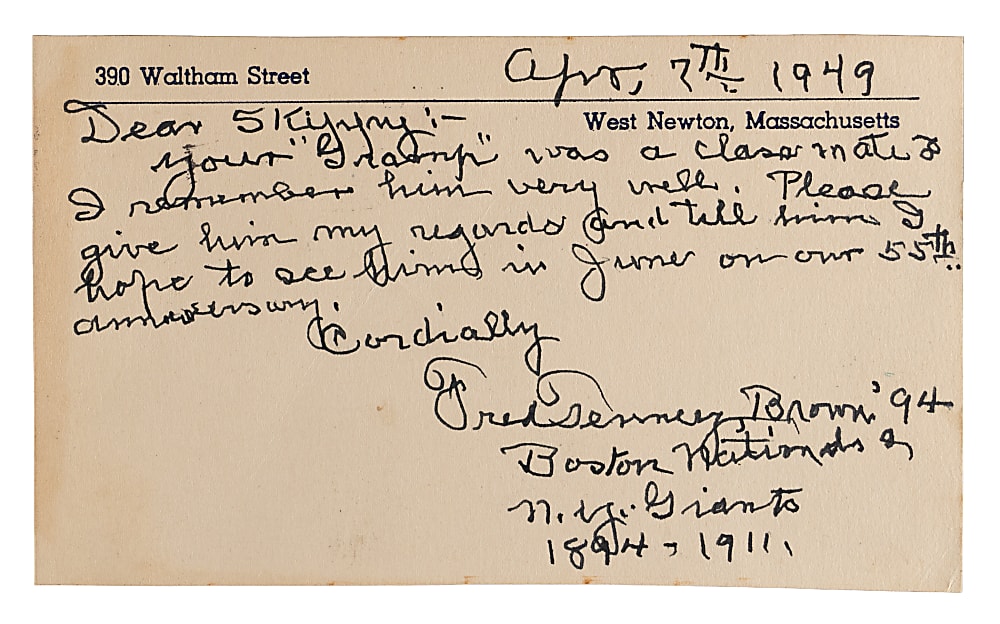 390 Waltham Street
Apr, 7th 1949
West Newton, Massachusetts
Dear Skippy:-
your "Gramp" was a classmate &
I remember him very well. Please
give him my regards and tell him I
hope to see him in June on our 55th
anniversary.
Cordially
Fred Tenney, Brown '94
Boston Nationals &
N.Y. Giants
1894-1911.